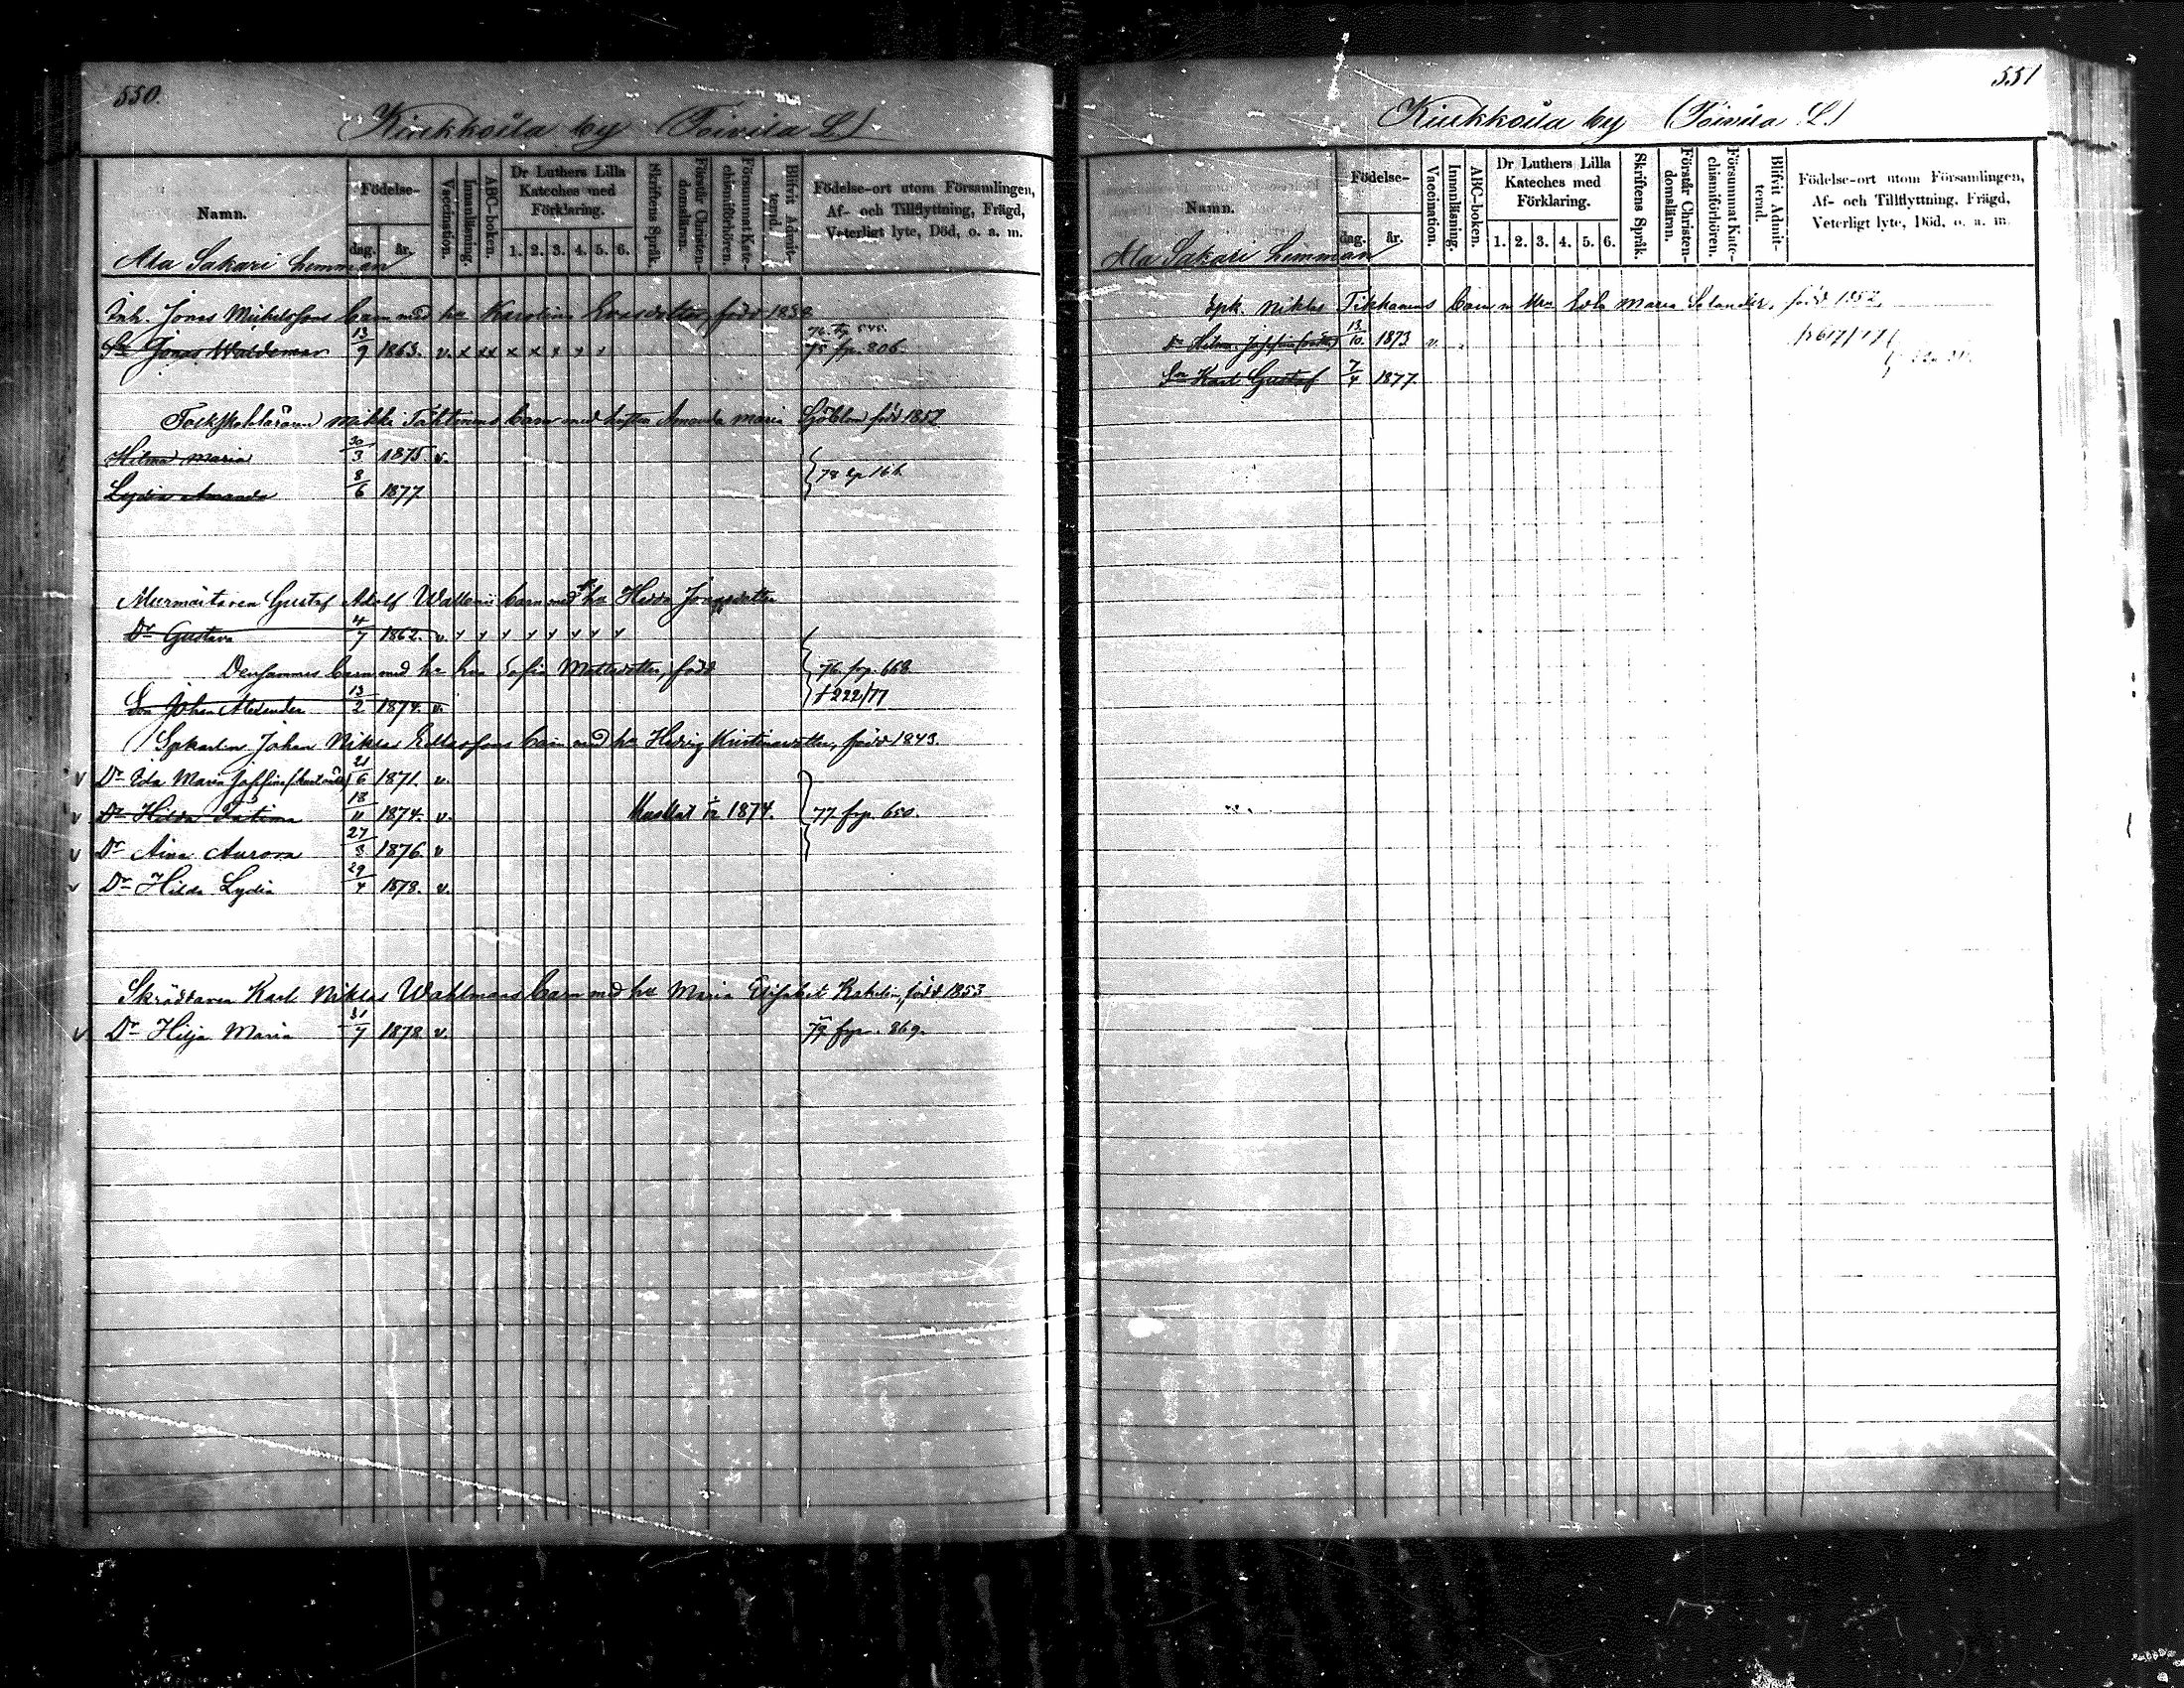 550.
Kirkkoila by (Toivila L.)
Namn.
Födelse-
dag. år.
Vaccination.
Innanläsning.
ABC-boken.
Dr Luthers Lilla Kateches med Förklaring.
1. 2. 3. 4. 5. 6.
Skriftens Språk.
Förstår Christendomsläran.
Försummat Katechismiförhören.
Blifvit Admitterad.
Födelse-ort utom Församlingen, Af- och Tillflyttning, Frägd, Veterligt lyte, Död, o. a. m.
Ala Sakari hemman
Inh. Jonas Michelssons barn med hu Karolina Evasdotter, född 1838
Sn Jonas Waldemar 13/9 1863. v. x xx x x x x x 75 fp. 806.
Folkskolläraren Tähtinens barn med hustrun Amanda Maria Sjöblom född 1852
Hilma Maria 30/3 1875 v.
Lydia Amanda 8/6 1877
Murmästaren Gustaf Adolf Wallenii barn med hu Hedda Jonasdotter
Dr Gustava 4/7 1862. v.
Densammes barn med hu Eva Sofia Mattsdotter, född 76. fp. 668.
Son Johan Alexander 13/2 1874. v. † 222/77
Spkarlen Johan Niklas Edlassons barn med hu Hedvig Kristinasdotter, född 1843.
v Dr Ida Maria Josefina 21/6 1871. v.
v Dr Hilda Fatima 18/11 1874. v. 1874. 77 fp. 650.
v Dr Aina Aurora 27/3 1876. v
v Dr Hilda Lydia 29/4 1878. v.
Skräddaren Karl Niklas Wahlmans barn med hu Maria Elisabet, född 1853
v Dr Hilja Maria 31/7 1878. v. 79 fp. 869.
551
Kirkkoila by (Toivila L.)
Namn.
Födelse-
dag. år.
Vaccination.
Innanläsning.
ABC-boken.
Dr Luthers Lilla Kateches med Förklaring.
1. 2. 3. 4. 5. 6.
Skriftens Språk.
Förstår Christendomsläran.
Försummat Katechismiförhören.
Blifvit Admitterad.
Födelse-ort utom Församlingen, Af- och Tillflyttning, Frägd, Veterligt lyte, Död, o. a. m.
Ala Sakari hemman
Spk. Niklas Tikkanens barn m. Maria Selander, född 1852.
Dr Hilma Josefina 13/10 1873 v.
Sn Karl Gustaf 7/4 1877.